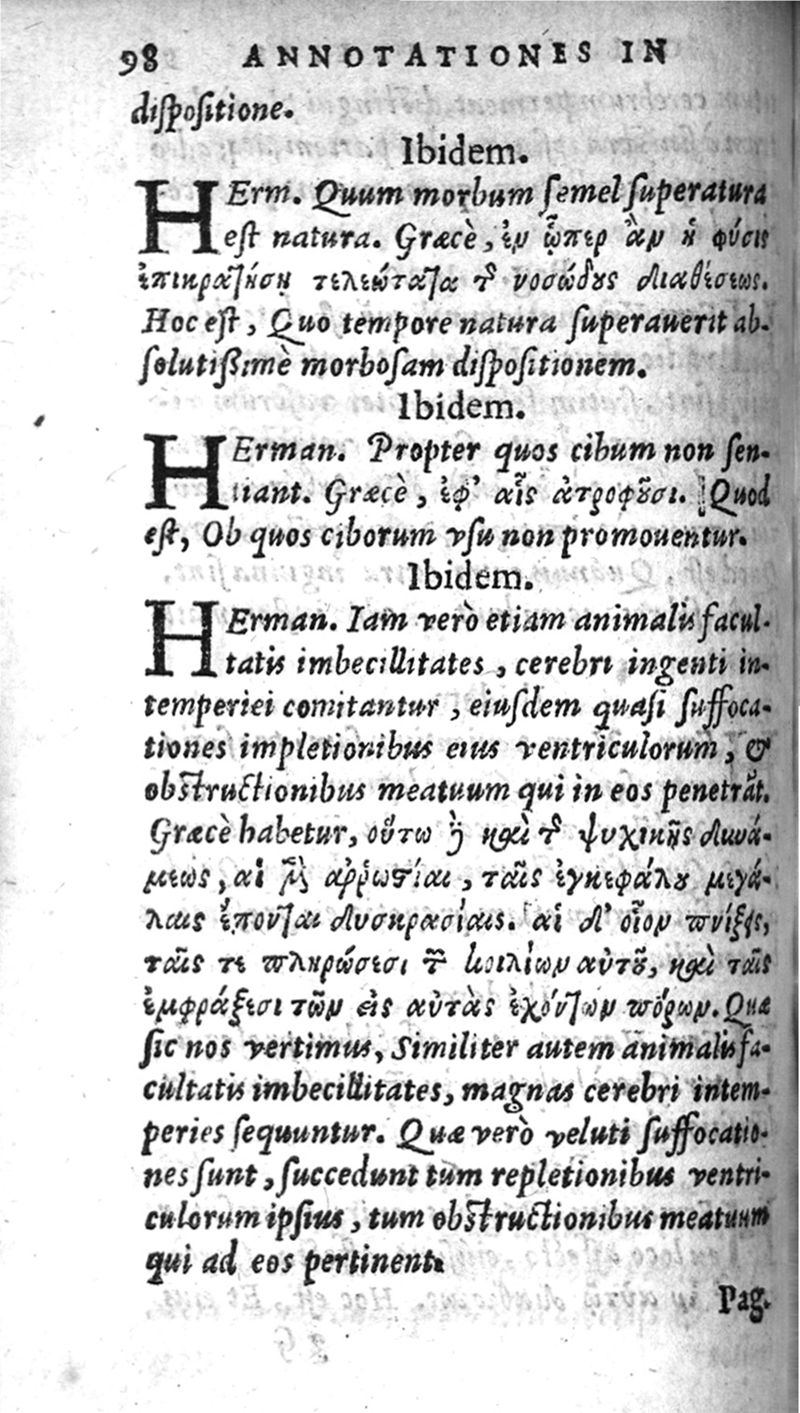 98 ANNOTATIONES IN
dispositione.
Ibidem.
HErm. Quum morbum semel superatura
est natura. Græcè, ἐν ᾧπερ ἂν ἡ φύσις
ἐπικρατήσῃ τελεώτατα τ͂ νοσώδους διαθέσεως.
Hoc est, Quo tempore natura superauerit ab-
solutißimè morbosam dispositionem.
Ibidem.
HErman. Propter quos cibum non sen-
tiant. Græcè, ἐφ’ αἷς ἀτροφοῦσι. Quod
est, Ob quos ciborum vsu non promouentur.
Ibidem.
HErman. Iam verò etiam animalis facul-
tatis imbecillitates, cerebri ingenti in-
temperiei comitantur, eiusdem quasi suffoca-
tiones impletionibus eius ventriculorum, &
obstructionibus meatuum qui in eos penetrāt.
Græcè habetur, οὕτω ἢ καὶ τ͂ ψυχικῆς δυνά-
μεως, αἱ μὲν ἀῤῥωστίαι, ταῖς ἐγκεφάλου μεγά-
λαις ἕπονται δυσκρασίαις. αἱ δ’ οἷον πνίξεις,
ταῖς τε πληρώσεσι τ͂ κοιλίων αὐτοῦ, καὶ ταῖς
ἐμφράξεσι τῶν εἰς αὐτὰς ἐχόντων πόρων. Quæ
sic nos vertimus, Similiter autem animalis fa-
cultatis imbecillitates, magnas cerebri intem-
peries sequuntur. Quæ verò veluti suffocatio-
nes sunt, succedunt tum repletionibus ventri-
culorum ipsius, tum obstructionibus meatuum
qui ad eos pertinent.
Pag.